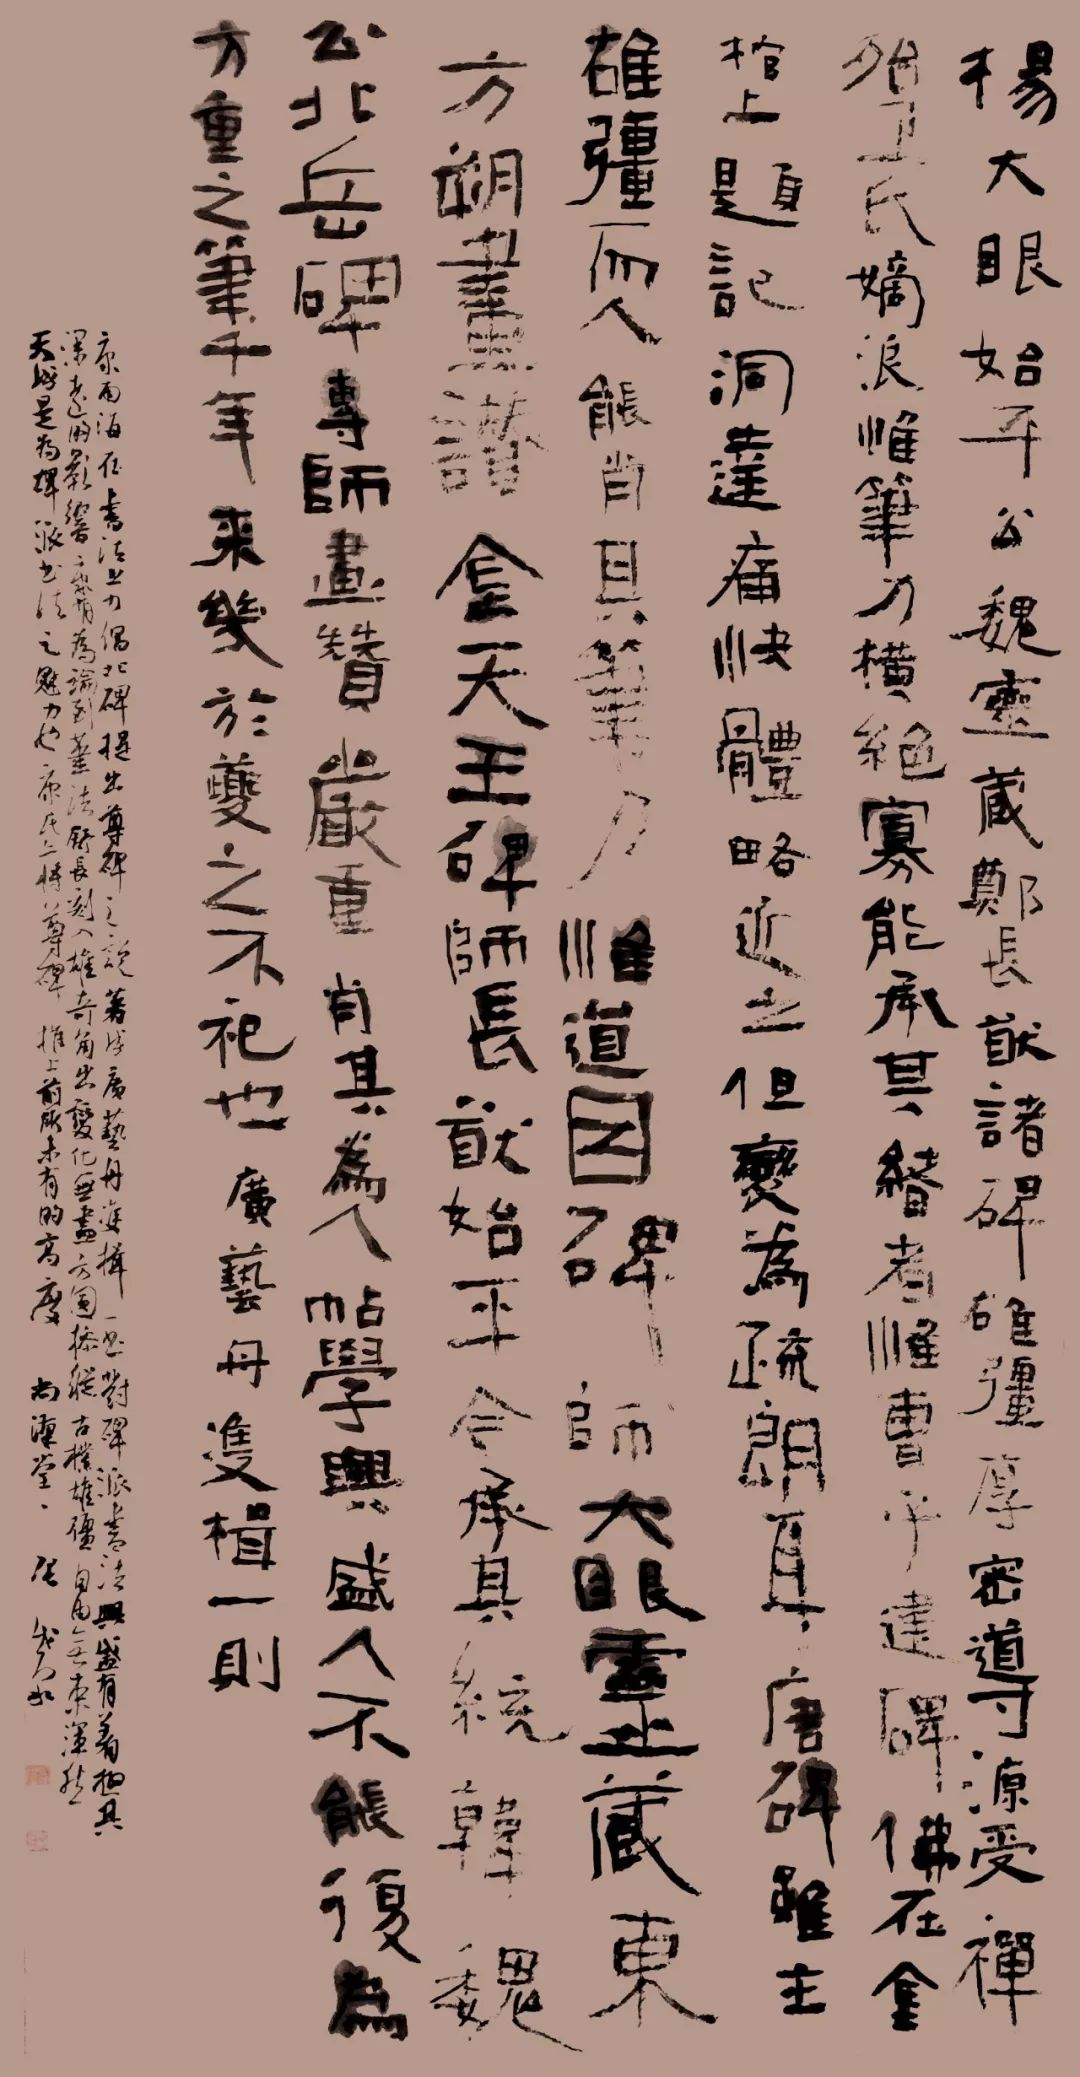 楊大眼始平公魏靈藏鄭長猷諸碑雄彊厚密導源受禪
殆卫氏嫡浪惟筆力橫絕寡能承其緒者惟曹子建碑佛在金
棺上題記洞達痛快體略近之但變為疏朗耳唐碑雖主
雄彊而人能肖其筆力惟道因碑師大眼靈藏東
方朔畫讃金天王碑師長猷始平令承其統韓魏
公北岳碑專師畫贊嚴重肖其為人帖學興盛人不能復為
方重之筆千年來幾於夔之不祀也廣藝舟雙楫一則
康南海在書法上力倡北碑提出尊碑之說著述廣藝舟雙楫一書對碑派書法興盛有着極其
深遠的影響為論到筆法舒長刻入雄奇角出變化無盡方圓古樸雄彊自由無束渾然
天成是為碑派書法之魅力也康氏尊碑推上前所未有的高度尚源堂